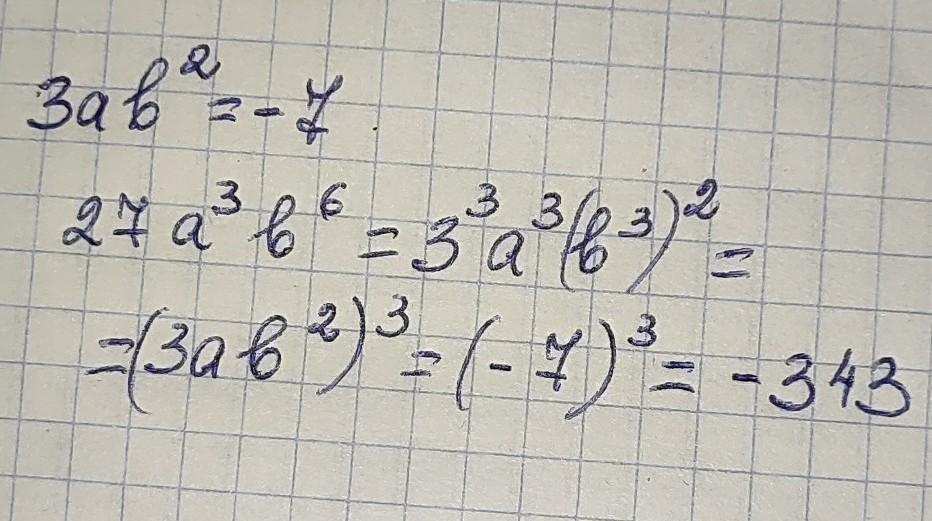 3ab² = -7
27a³b⁶ = 3³a³(b³)² =
= (3ab²)³ = (-7)³ = -343